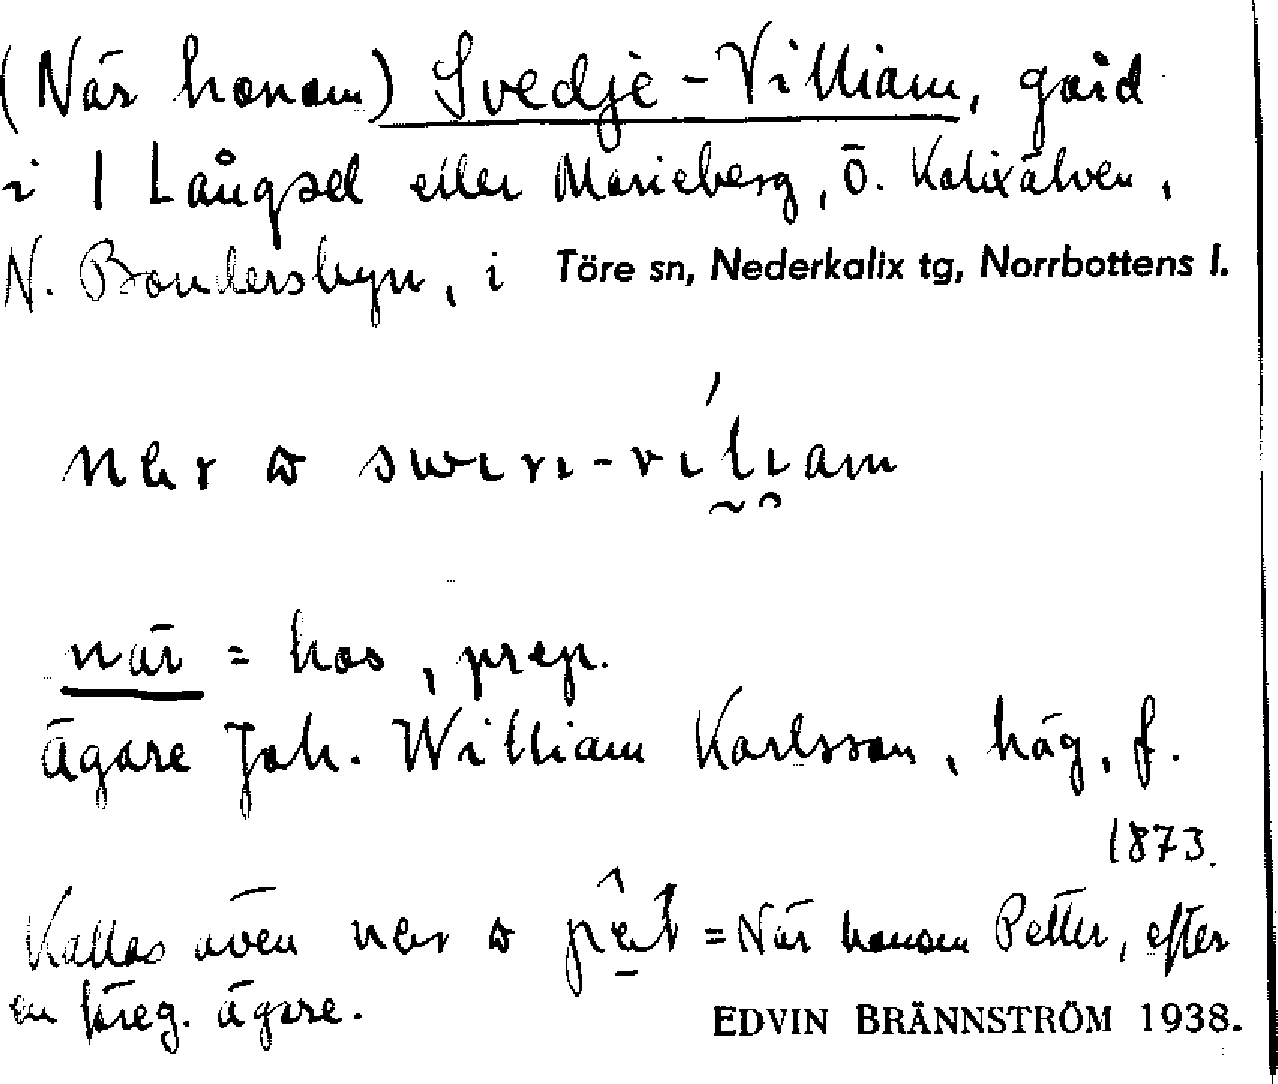 (När honom) Svedje-Villiam, gård
i 1 Långsel eller Marieberg, Ö. Kalixälven,
N. Bondersbyn, i Töre sn, Nederkalix tg, Norrbottens l.
när = hos, prep.
ägare Joh. William Karlsson, häg, f.
1873.
Kallas även = När honom Petter, efter
en föreg. ägare.
EDVIN BRÄNNSTRÖM 1938.